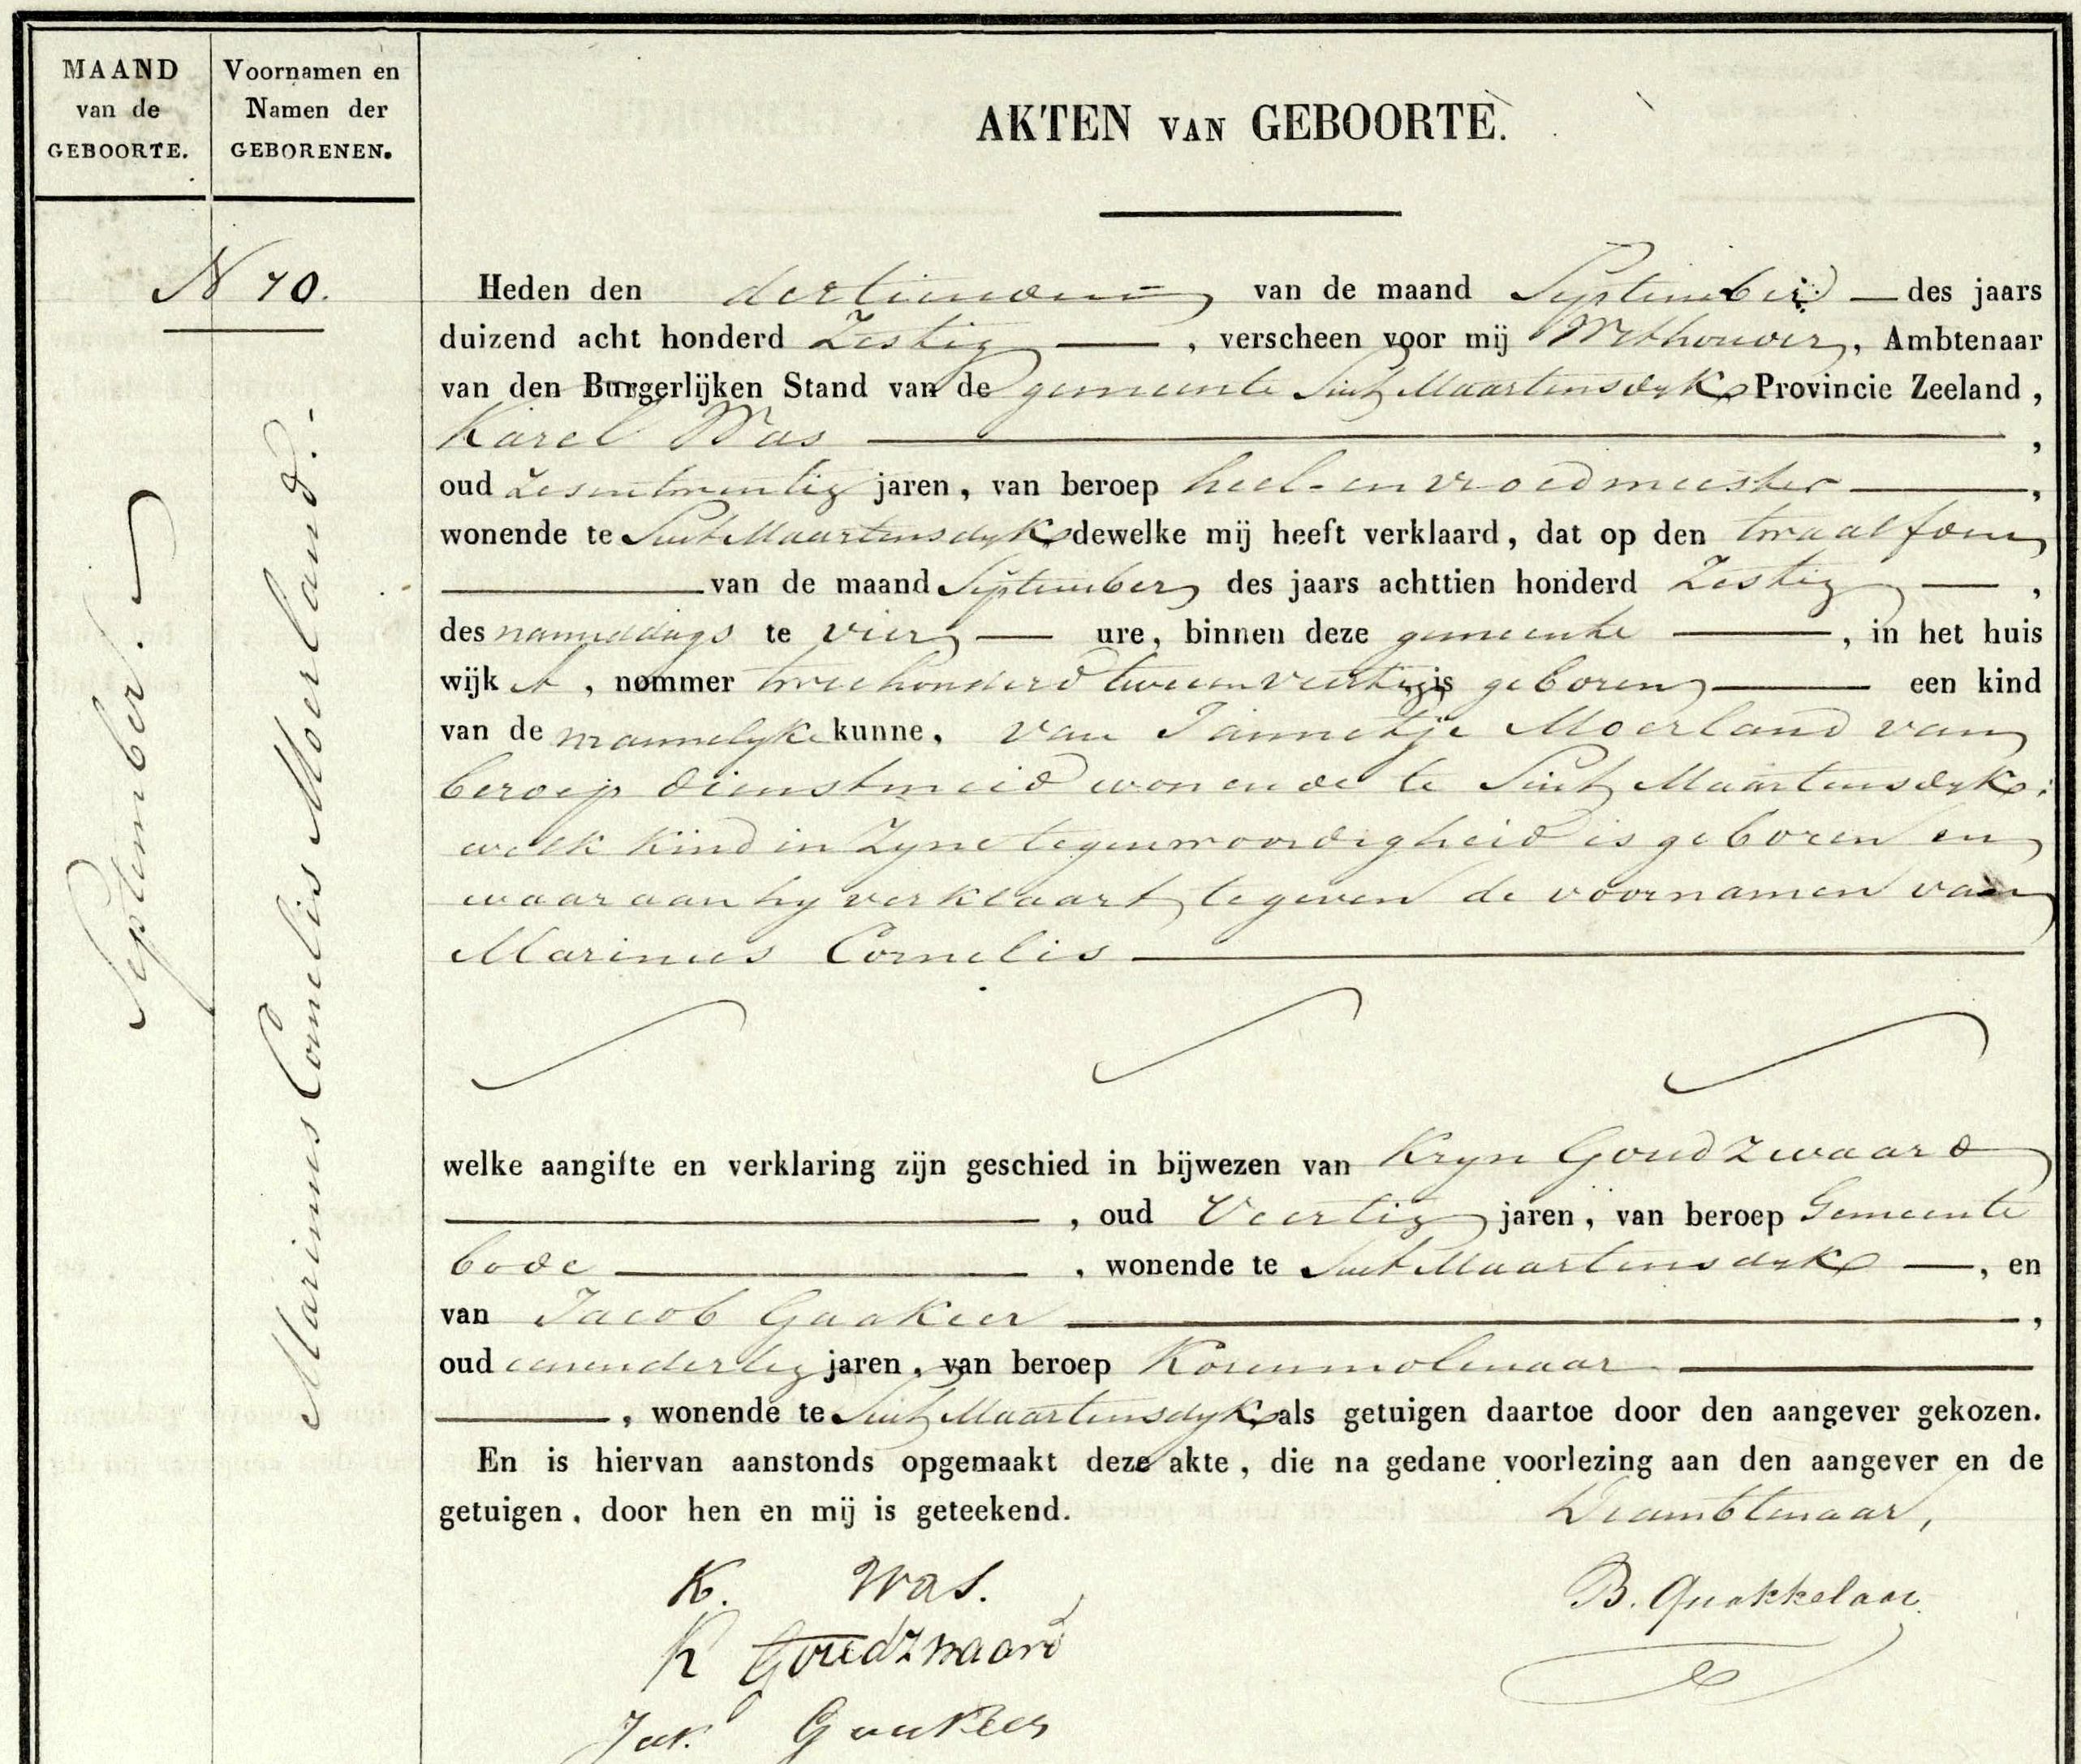 MAAND
van de
GEBOORTE.
Voornamen en
Namen der
GEBORENEN.
AKTEN VAN GEBOORTE.
N 70.
September.
Marinus Cornelis Moerland.
Heden den dertienden van de maand September des jaars
duizend acht honderd Zestig, verscheen voor mij Wethouder, Ambtenaar
van den Burgerlijken Stand van de gemeente Sint Maartensdyk Provincie Zeeland,
Karel Was,
oud zesentwintig jaren, van beroep heel- en vroedmeester,
wonende te Sint Maartensdyk dewelke mij heeft verklaard, dat op den twaalfden
van de maand September des jaars achttien honderd Zestig,
des namiddags te vier ure, binnen deze gemeente, in het huis
wijk A, nommer tweehonderd tweeenveertig is geboren een kind
van de mannelyke kunne, van Jannetje Moerland van
beroep dienstmeid wonende te Sint Maartensdyk;
welk kind in Zyne tegenwoordigheid is geboren en
waaraan hy verklaart te geven de voornamen van
Marinus Cornelis
welke aangifte en verklaring zijn geschied in bijwezen van Kryn Goudzwaard
, oud Veertig jaren, van beroep Gemeente
bode, wonende te Sint Maartensdyk, en
van Jacob Gaakeer,
oud eenendertig jaren, van beroep Korenmolenaar
, wonende te Sint Maartensdyk als getuigen daartoe door den aangever gekozen.
En is hiervan aanstonds opgemaakt deze akte, die na gedane voorlezing aan den aangever en de
getuigen, door hen en mij is geteekend. De ambtenaar,
K. Was.
B. Quakkelaar.
K Goudzwaard
Jak. Gaakeer